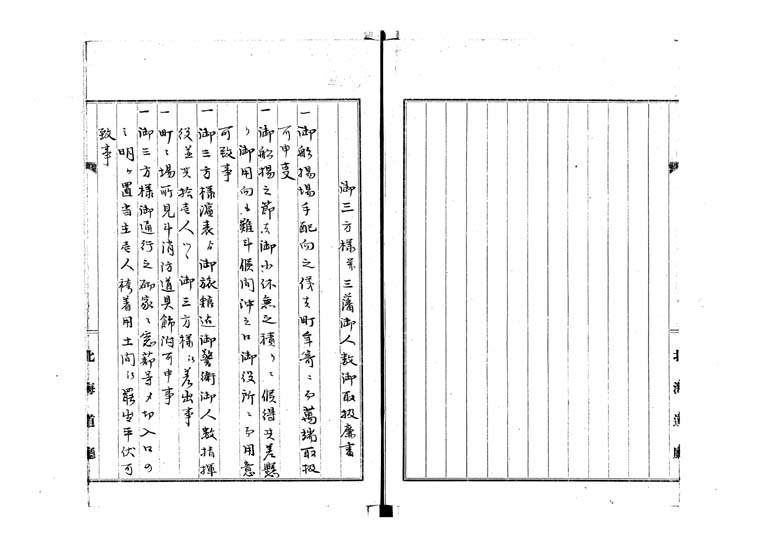 御三方様并三藩御人数御取扱廉書
一御船揚場手配向之儀者町年寄ニ而萬端取扱
可申事
一御船揚之節者御小休無之積リニ候得共差懸
リ御用向も難斗候間沖之口御役所ニ而用意
可致事
一御三方様濱表ゟ御旅館迄御警衛御人数指揮
役並共拾壱人ツヽ御三方様江差出事
一町ニ場所見斗消防道具飾附可申事
一御三方様御通行之砌家ニ窓蔀等〆切入口の
ミ明ケ置当主壱人袴着用土間江罷出平伏可
致事
北海道廳
北海道廳